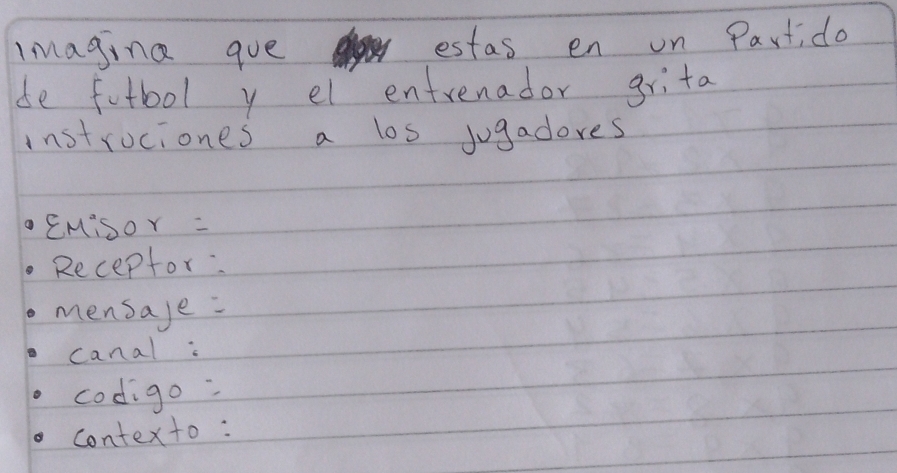 imagina que estas en un Partido
de futbol y el entrenador grita
instruciones a los jugadores
• EMisor =
• Receptor:
• mensaje =
• canal :
• codigo =
• contexto :